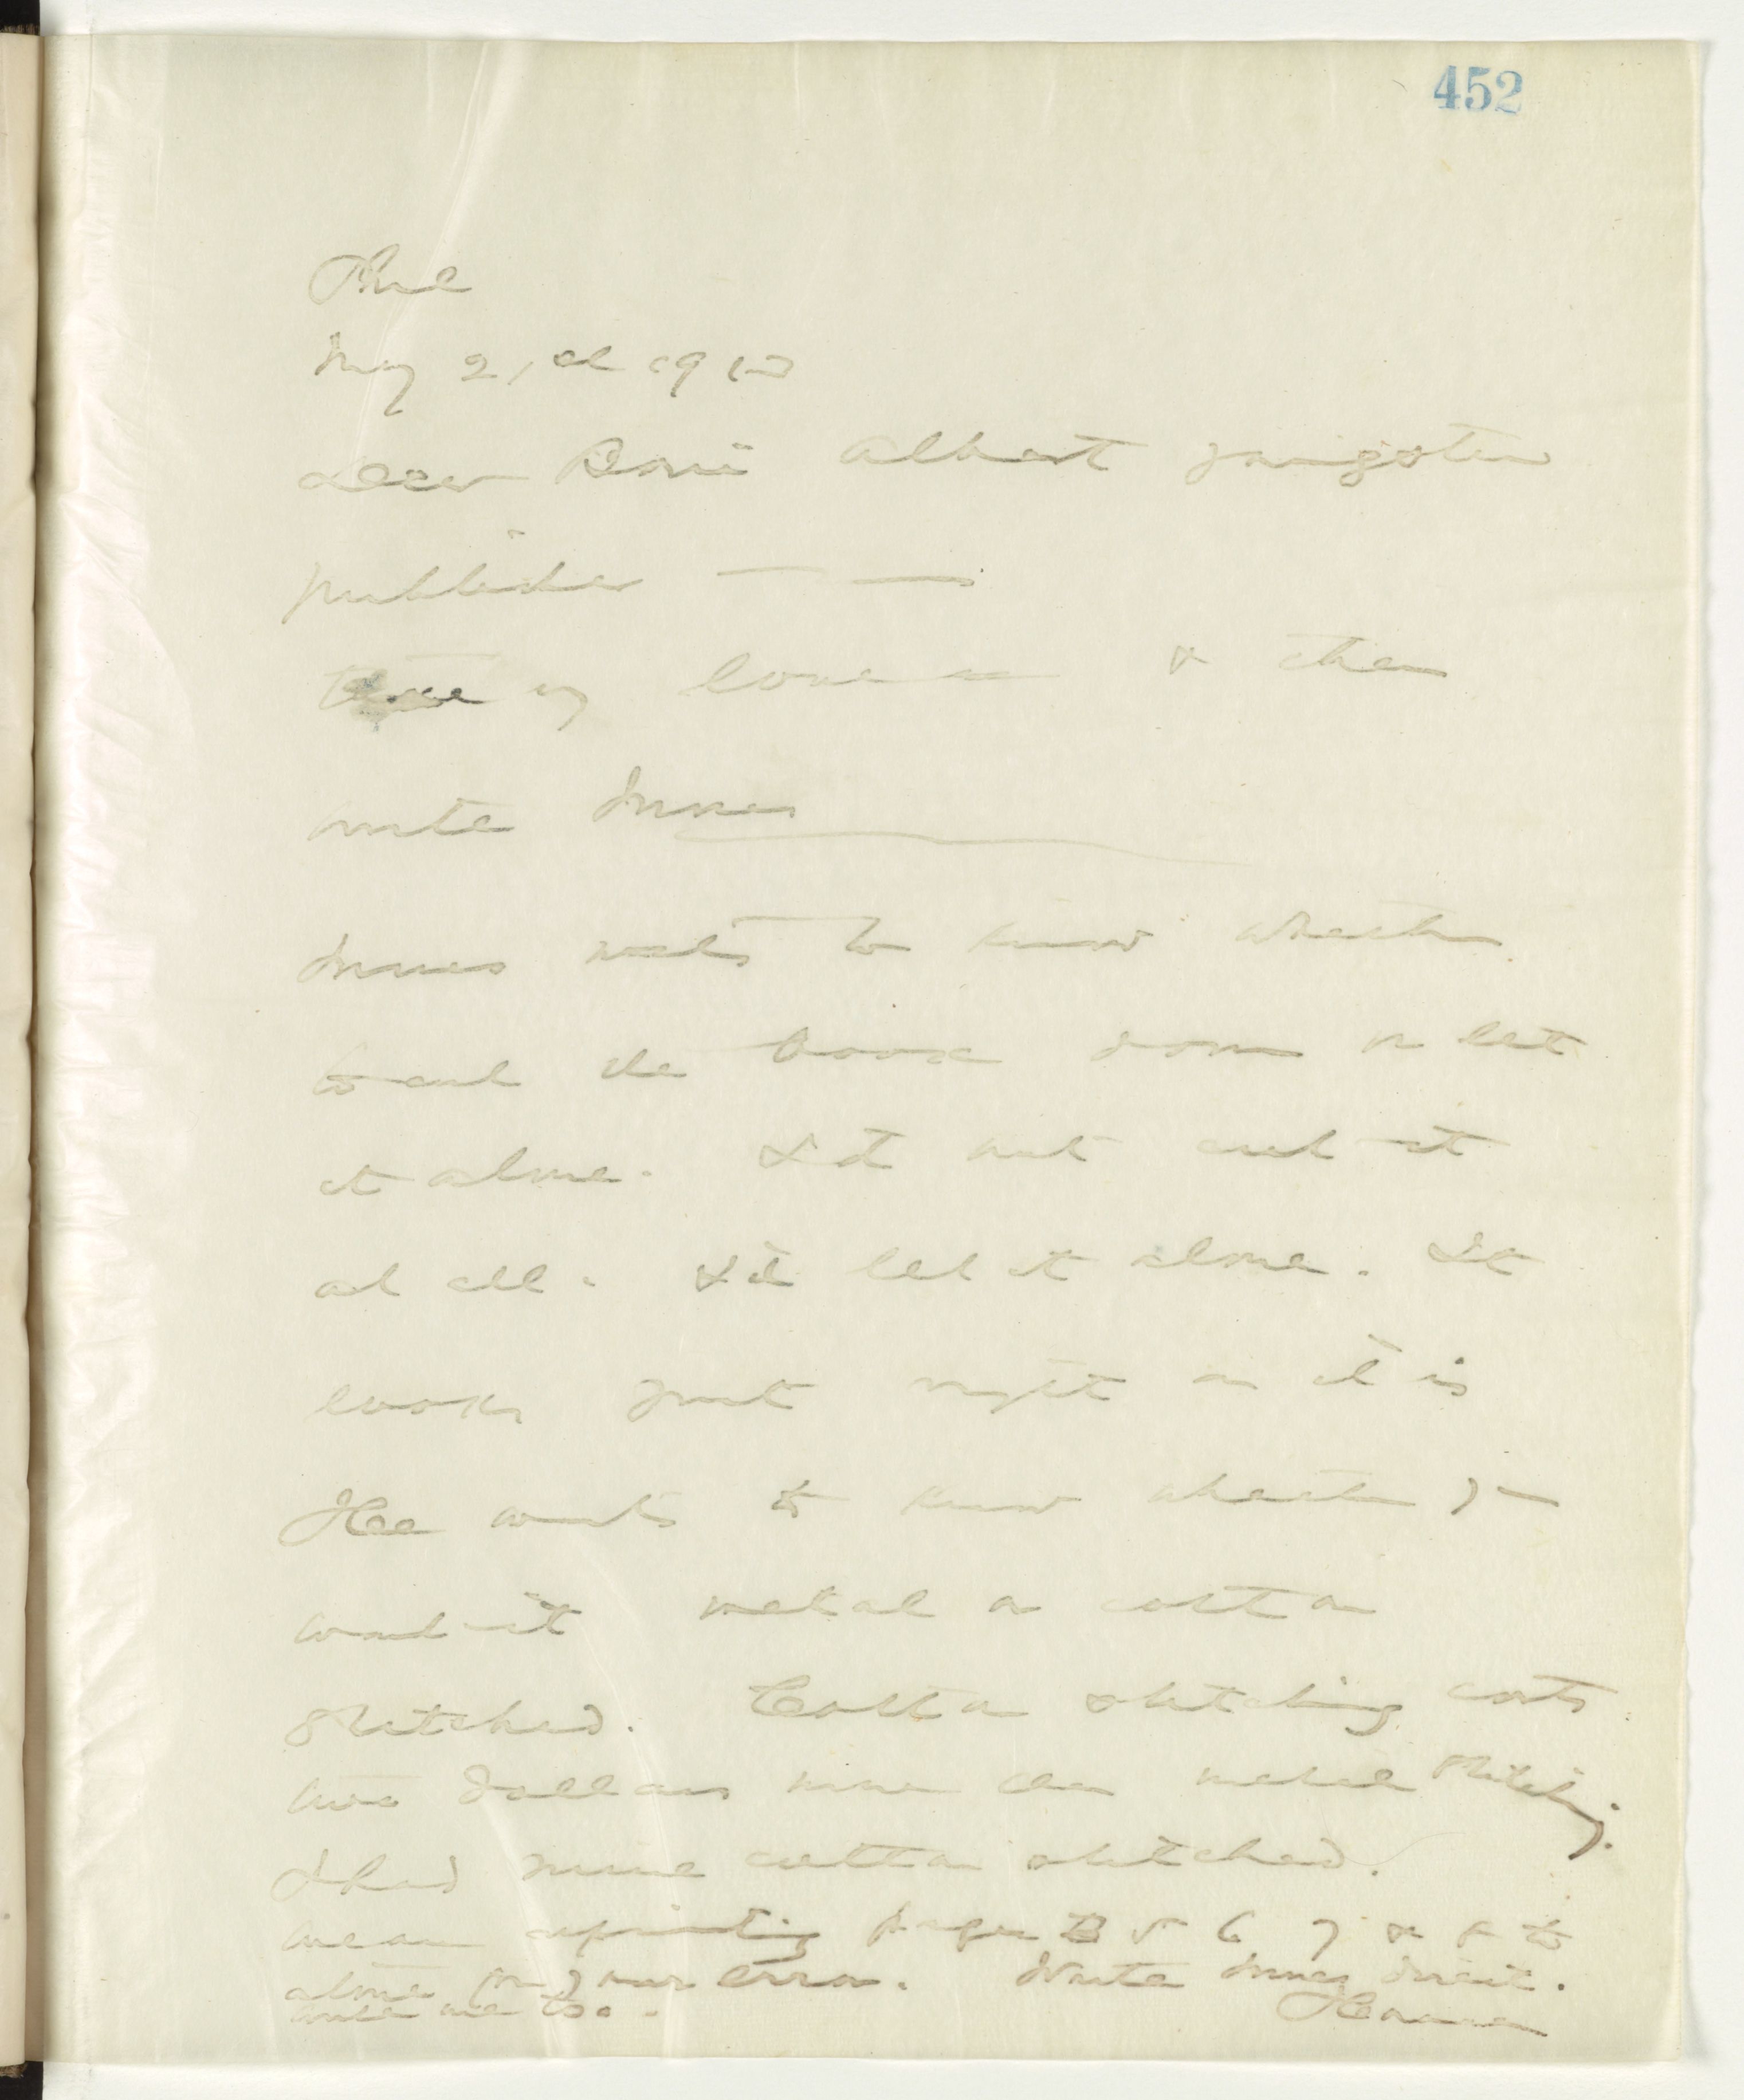 452
Phil
May 21st 1910
Dear Albert
publisher
& then
write Innes
Innes wants to know whether
to cut the book down or let
it alone. I'd not cut it
at all. I'd let it alone. It
looks just right as it is
Hee wants to know whether you
want it metal or cotton
stitched. Cotton stitching costs
two dollars more than metal stitching.
I had mine cotton stitched.
We are reprinting pages 5 6 7 & 8 to
atone for your error. Write Innes direct.
write me too. Horace